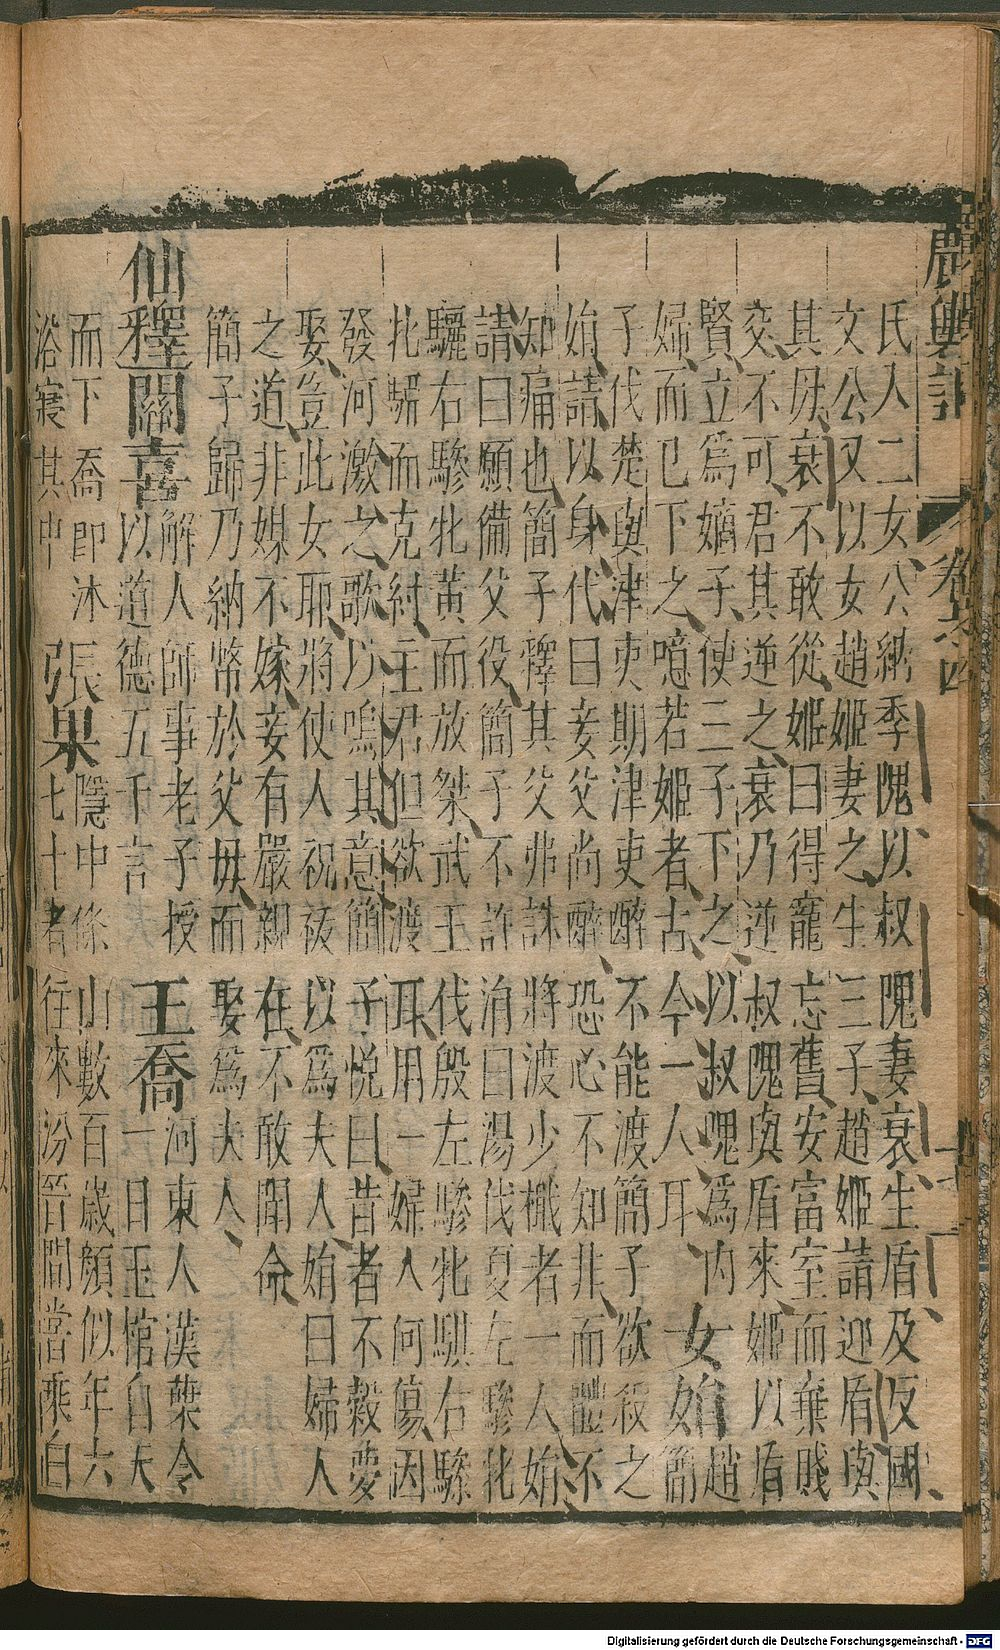 廣輿記 卷六
氏人二女公納季隗以叔隗妻衰生盾及反國
文公又以女趙姬妻之生三子趙姬請迎盾與
其母衰不敢從姬曰得寵忘舊安富室而棄賤
交不可君其逆之衰乃逆叔隗與盾來姬以盾
賢立爲嫡子使三子下之以叔隗爲內
婦而已下之噫若姬者古今一人耳
女娟 趙簡
子伐楚與津吏期津吏醉不能渡簡子欲殺之
娟請以身代曰妾父尚醉恐心不知非而體不
知痛也簡子釋其父弗誅將渡少檝者一人娟
請曰願備父役簡子不許涓曰湯伐夏左驂牝
驪右驂牝黃而放桀武王伐殷左驂牝騏右驂
牝騧而克紂主君但欲渡耳用一婦人何傷因
發河激之歌以鳴其意簡子悅曰昔者不穀夢
娶豈此女耶將使人祝祓以爲夫人娟曰婦人
之道非媒不嫁妾有嚴親在不敢聞命
簡子歸乃納幣於父母而娶爲夫人
仙釋關喜 解人師事老子授以道德五千言 王喬 河東人漢葉令一日玉棺自天
而下喬即沐浴寢其中 張果 隱中條山數百歲顏似年六七十者往來汾晉間嘗乘白
Digitalisierung gefördert durch die Deutsche Forschungsgemeinschaft - DFG